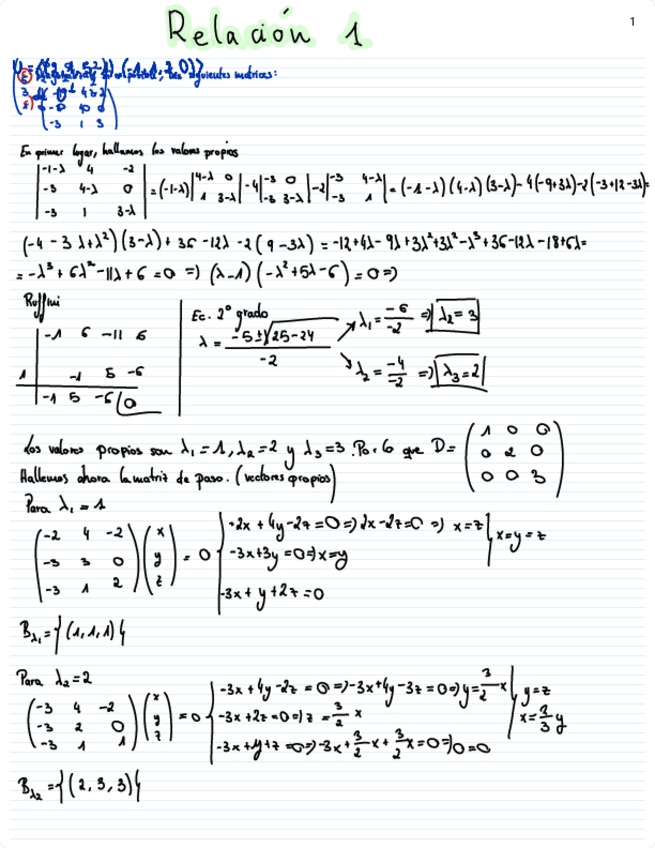 Relación 1
1
siguientes matrices:
-3 1 3
En primer lugar, hallamos los valores propios
|-1-λ 4 -2|
|-3 4-λ 0| = (-1-λ) |4-λ 0; 1 3-λ| -4 |-3 0; -3 3-λ| -2 |-3 4-λ; -3 1| = (-1-λ)(4-λ)(3-λ) - 4(-9+3λ) - 2(-3+12-3λ) =
|-3 1 3-λ|
(-4-3λ+λ²)(3-λ) + 36-12λ -2(9-3λ) = -12+4λ-9λ+3λ²+3λ²-λ³+36-12λ-18+6λ =
= -λ³+6λ²-11λ+6 = 0 => (λ-1)(-λ²+5λ-6) = 0 =>
Ruffini
-1 6 -11 6
1 -1 5 -6
-1 5 -6 0
Ec. 2º grado
λ = (-5±√25-24)/-2
λ₁ = -6/-2 => λ₂ = 3
λ₂ = -4/-2 => λ₃ = 2
Los valores propios son λ₁=1, λ₂=2 y λ₃=3. Por lo que D = (1 0 0; 0 2 0; 0 0 3)
Hallemos ahora la matriz de paso. (vectores propios)
Para λ₁ = 1
(-2 4 -2; -3 3 0; -3 1 2) (x; y; z) = 0
-2x+4y-2z=0 => 2x-2z=0 => x=z
-3x+3y=0 => x=y
-3x+y+2z=0
x=y=z
Bλ₁ = {(1,1,1)}
Para λ₂=2
(-3 4 -2; -3 2 0; -3 1 1) (x; y; z) = 0
-3x+4y-2z=0 => -3x+4y-3z=0 => y=3/2 x
-3x+2z=0 => z=3/2 x
-3x+y+z=0 => -3x+3/2 x+3/2 x=0 => 0=0
y=z
x=2/3 y
Bλ₂ = {(2,3,3)}